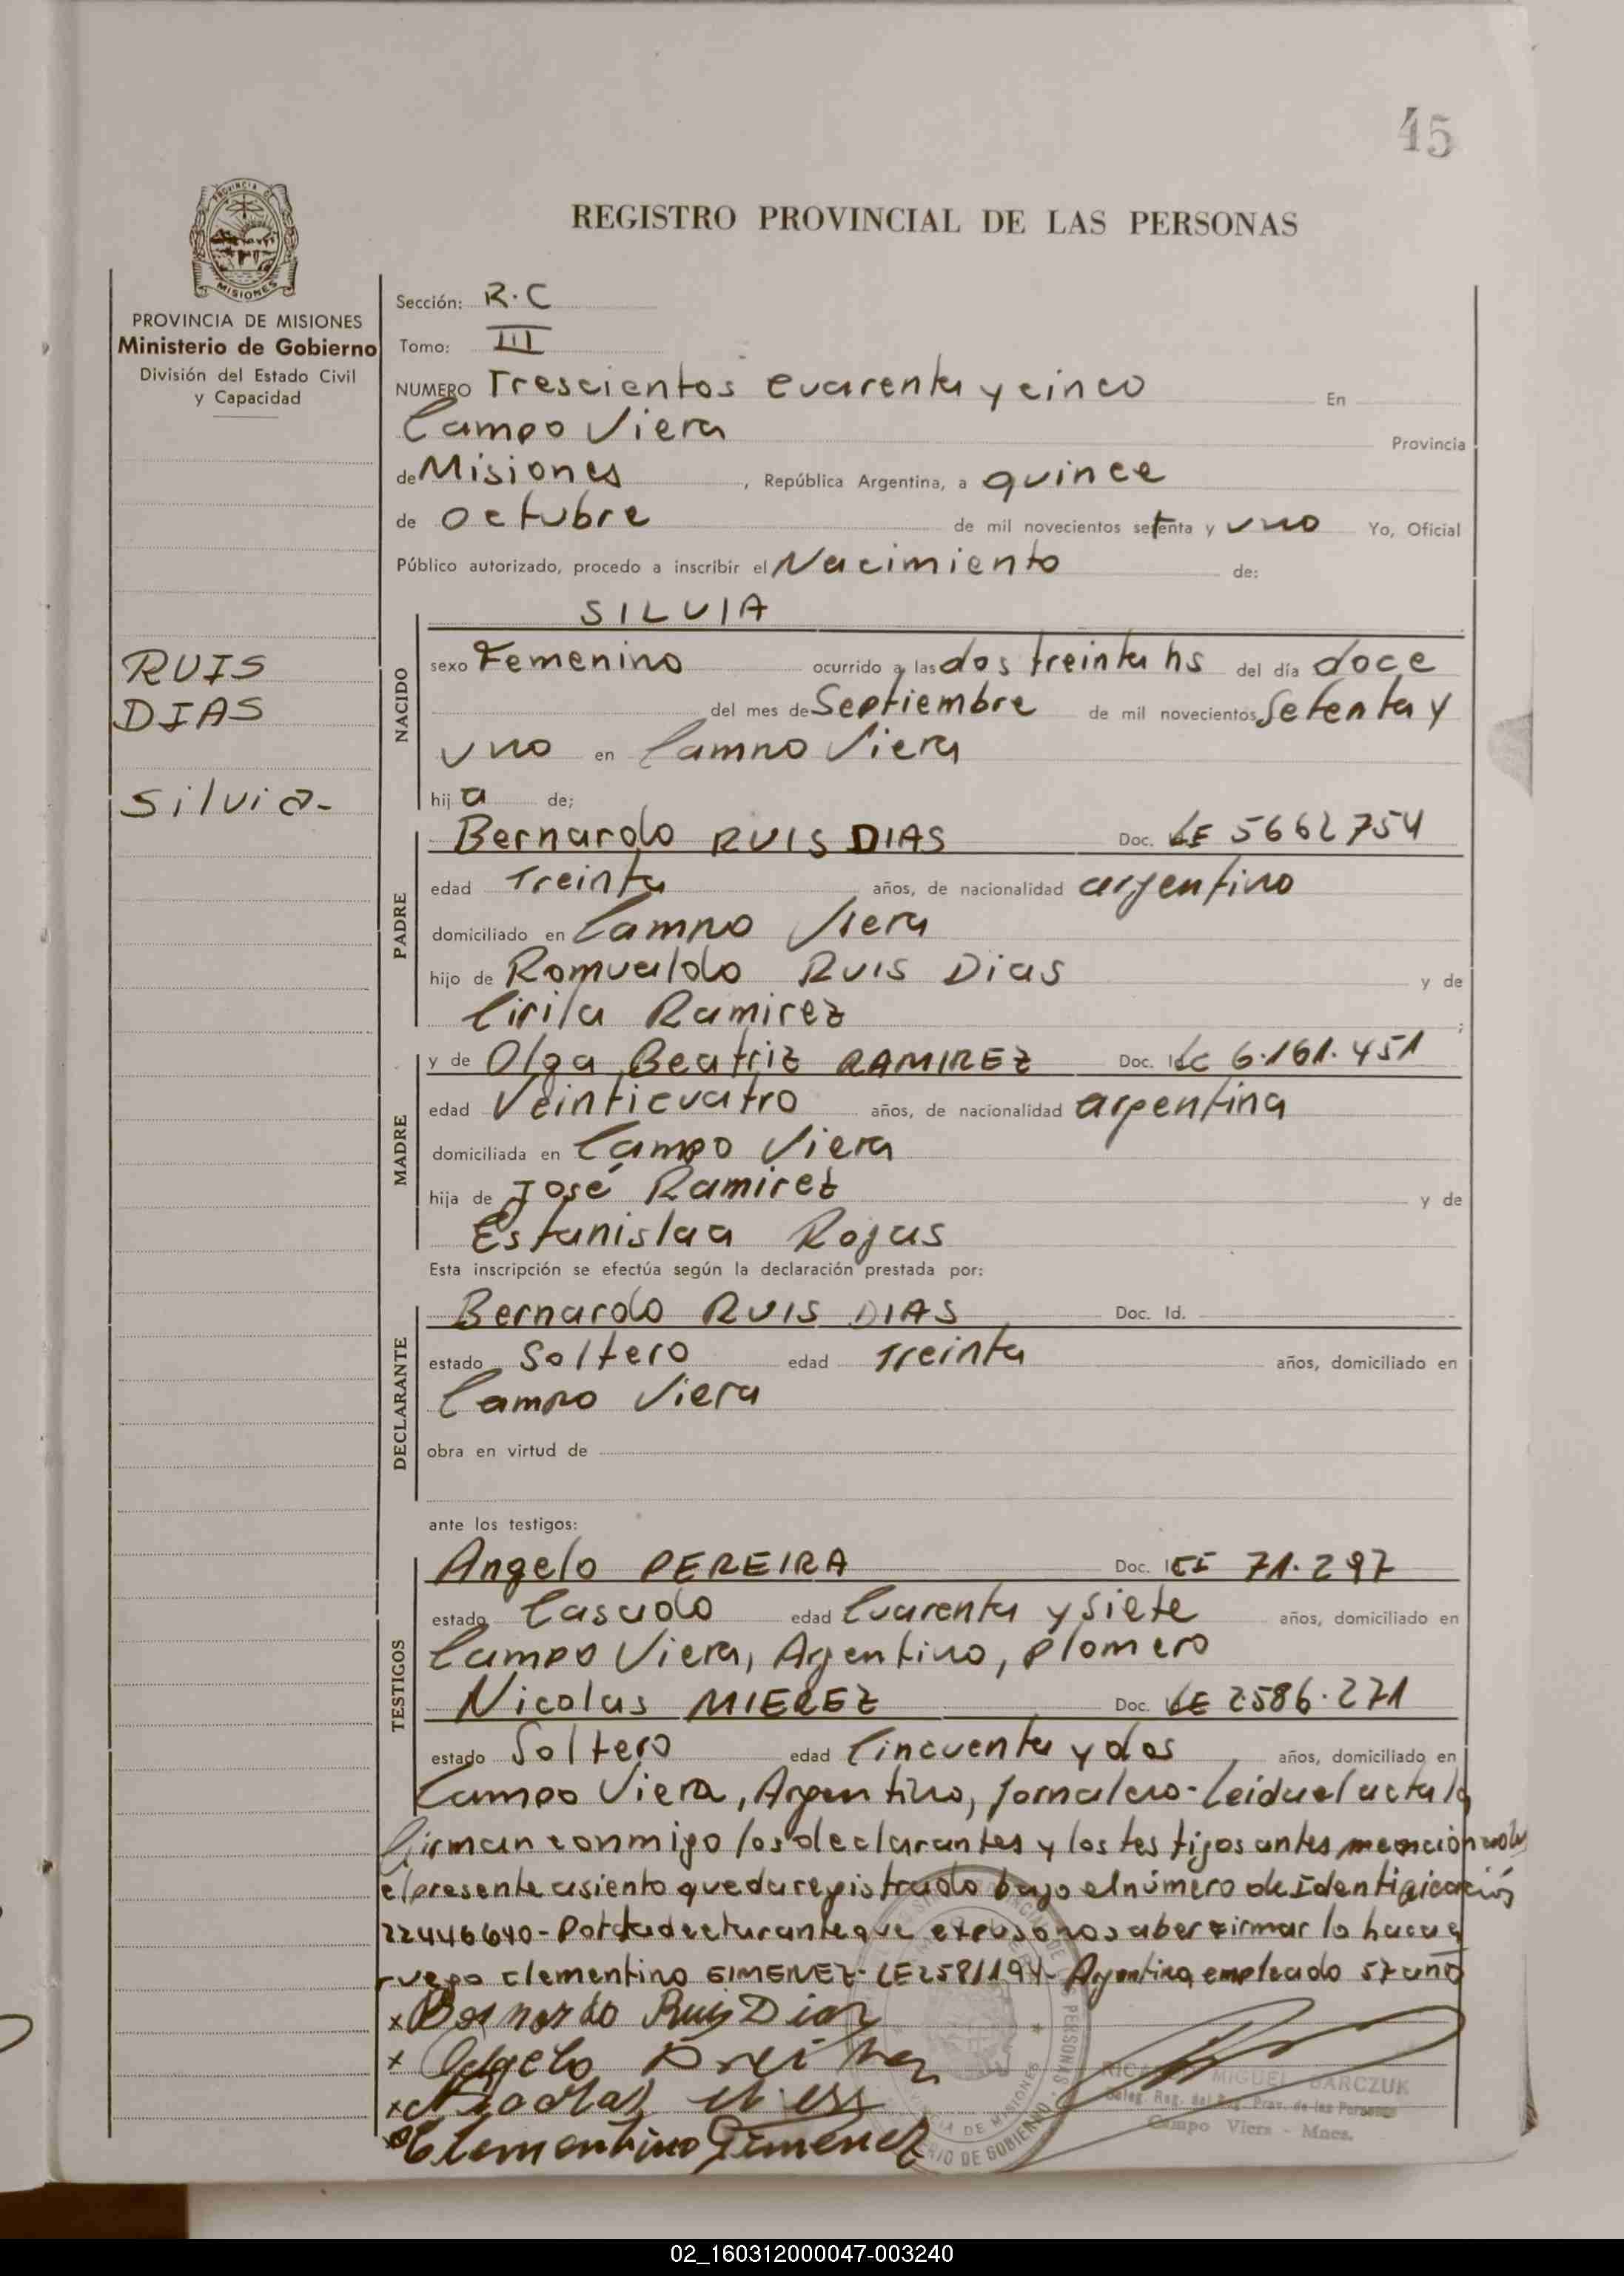 45
REGISTRO PROVINCIAL DE LAS PERSONAS
PROVINCIA DE MISIONES
Ministerio de Gobierno
División del Estado Civil
y Capacidad
RUIS
DIAS
Silvia-
Sección: R.C
Tomo: III
NUMERO Trescientos cuarenta y cinco En
Campo Viera Provincia
de Misiones, República Argentina, a quince
de octubre de mil novecientos setenta y uno Yo, Oficial
Público autorizado, procedo a inscribir el Nacimiento de:
SILVIA
NACIDO
sexo Femenino ocurrido a las dos treinta hs del día doce
del mes de Septiembre de mil novecientos Setenta y
uno en Campo Viera
hija de;
PADRE
Bernardo RUIS DIAS Doc. LE 5662754
edad Treinta años, de nacionalidad argentino
domiciliado en Campo Viera
hijo de Romualdo Ruis Dias y de
Cirila Ramirez ;
MADRE
y de Olga Beatriz RAMIREZ Doc. LC 6.161.451
edad Veinticuatro años, de nacionalidad argentina
domiciliada en Campo Viera
hija de José Ramirez y de
Estanislaa Rojas
Esta inscripción se efectúa según la declaración prestada por:
DECLARANTE
Bernardo RUIS DIAS Doc. Id.
estado Soltero edad Treinta años, domiciliado en
Campo Viera
obra en virtud de
ante los testigos:
TESTIGOS
Angelo PEREIRA Doc. CI 71.297
estado Casado edad Cuarenta y Siete años, domiciliado en
Campo Viera, Argentino, plomero
Nicolas MIEREZ Doc. LE 2586.271
estado Soltero edad Cincuenta y dos años, domiciliado en
Campo Viera, Argentino, Jornalero- Leida el acta la
firman conmigo los declarantes y los testigos antes mencionados
el presente asiento queda registrado bajo el número de Identificación
22446640- Por la declarante que expuso no saber firmar lo hace a
ruego Clementino GIMENEZ- LE2581194- Argentino, empleado 57 año
x Bernardo Ruis Dias
x Angelo
x Nicolas
x Clementino Gimenez
MIGUEL BARCZUK
Deleg. Reg. del Reg. Prov. de las Personas
Campo Viera - Mnes.
02_160312000047-003240